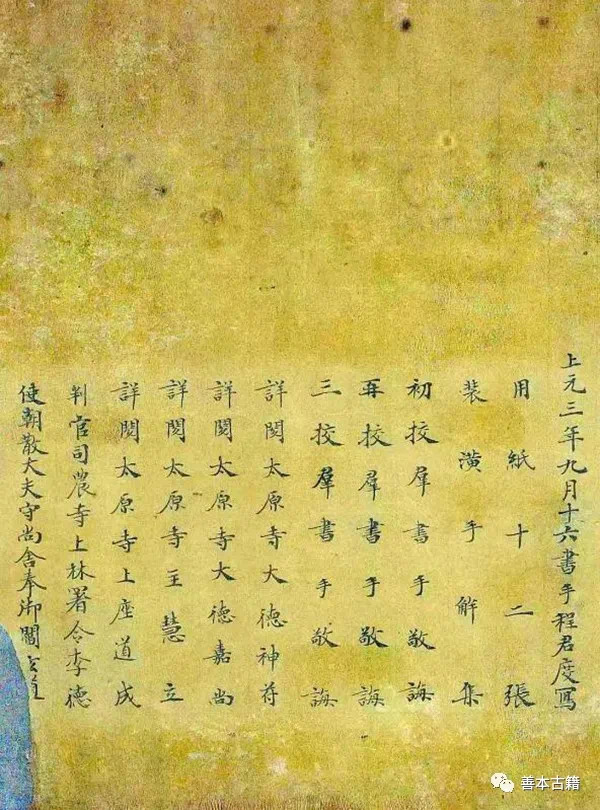 上元三年九月十六書手程君度寫
用紙十二張
装潢手解集
初挍羣書手敬誨
再挍羣書手敬誨
三挍羣書手敬誨
詳閱太原寺大德神苻
詳閱太原寺大德嘉尚
詳閱太原寺主慧立
詳閱太原寺上座道成
判官司農寺上林署令李德
使朝散大夫守尚舍奉御閻
善本古籍